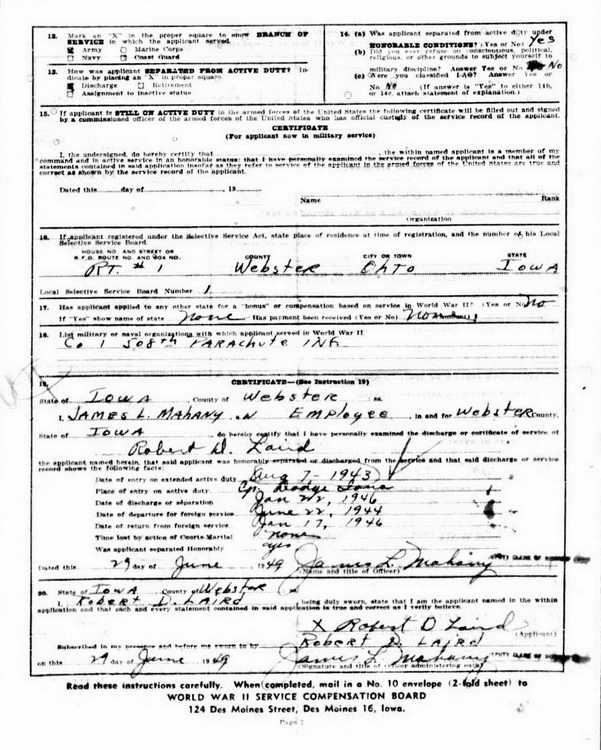 12. Mark an "X" in the proper square to show BRANCH OF
SERVICE in which the applicant served.
Army Marine Corps
Navy Coast Guard
13. How was applicant SEPARATED FROM ACTIVE DUTY? In-
dicate by placing an "X" in proper square.
Discharge Retirement
Assignment to inactive status
14. (a) Was applicant separated from active duty under
HONORABLE CONDITIONS? (Yes or No) Yes
(b) Did you ever refuse on conscientious, political,
religious, or other grounds to subject yourself to
military discipline? Answer Yes or No No
(c) Were you classified 1-AO? Answer Yes or
No. No (If answer is "Yes" to either 14b,
or 14c, attach statement of explanation.)
15. If applicant is STILL ON ACTIVE DUTY in the armed forces of the United States the following certificate will be filled out and signed
by a commissioned officer of the armed forces of the United States who has official custody of the service record of the applicant.
CERTIFICATE
(For applicant now in military service)
I, the undersigned, do hereby certify that , the within named applicant is a member of my
command and in active service in an honorable status; that I have personally examined the service record of the applicant and that all of the
statements contained in said application insofar as they refer to service of the applicant in the armed forces of the United States are true and
correct as shown by the service record of the applicant.
Dated this day of , 19
Name Rank
Organization
16. If applicant registered under the Selective Service Act, state place of residence at time of registration, and the number of his Local
Selective Service Board.
HOUSE NO. AND STREET OR COUNTY CITY OR TOWN STATE
R.F.D. ROUTE NO. AND BOX NO.
RT. # 1 Webster Iowa
Local Selective Service Board Number 1
17. Has applicant applied to any other state for a "bonus" or compensation based on service in World War II? (Yes or No) No
If "Yes" show name of state None Has payment been received (Yes or No)
18. List military or naval organizations with which applicant served in World War II
Co I 508th PARACHUTE INF
19. CERTIFICATE—(See Instruction 19)
State of Iowa, County of Webster ss.
I, JAMES L. MAHANY EMPLOYEE in and for Webster County,
State of IOWA do hereby certify that I have personally examined the discharge or certificate of service of
Robert D. Laird
the applicant named herein, that said applicant was honorably separated or discharged from the service and that said discharge or service
record shows the following facts:
Date of entry on extended active duty Aug 7, 1943
Place of entry on active duty Dodge Iowa
Date of discharge or separation Jan 22, 1946
Date of departure for foreign service June 22, 1944
Date of return from foreign service Jan 17, 1946
Time lost by action of Courts-Martial none
Was applicant separated Honorably yes
Dated this 29 day of June 1949 James L. Mahany
(Name and title of Officer)
20. State of Iowa County of Webster
I, Robert D. LAIRD being duly sworn, state that I am the applicant named in the within
application and that each and every statement contained in said application is true and correct as I verily believe.
X Robert D Laird
(Applicant)
Robert D. LAIRD
Subscribed in my presence and before me sworn to by
on this 29 day of June 1949 James L Mahany DEPUTY CLERK OF
(Signature and title of officer administering oath)
Read these instructions carefully. When completed, mail in a No. 10 envelope (2-fold sheet) to
WORLD WAR II SERVICE COMPENSATION BOARD
124 Des Moines Street, Des Moines 16, Iowa.
Page 2